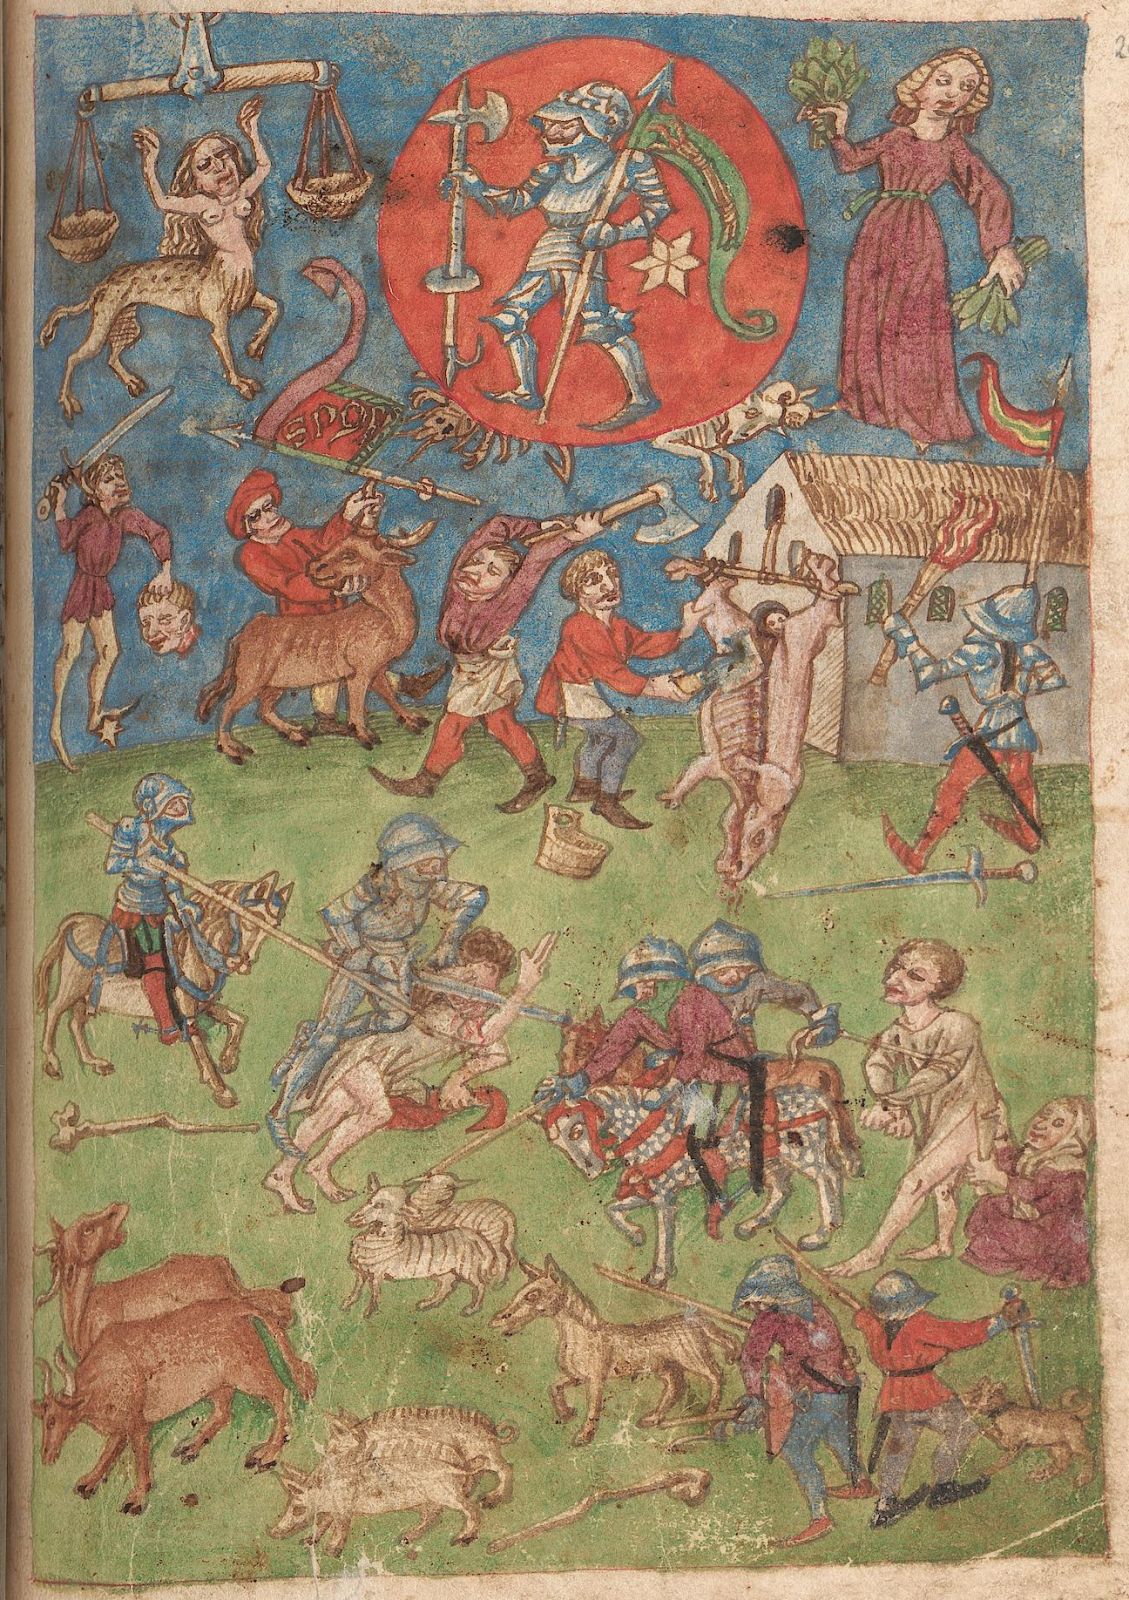 SPQR
2